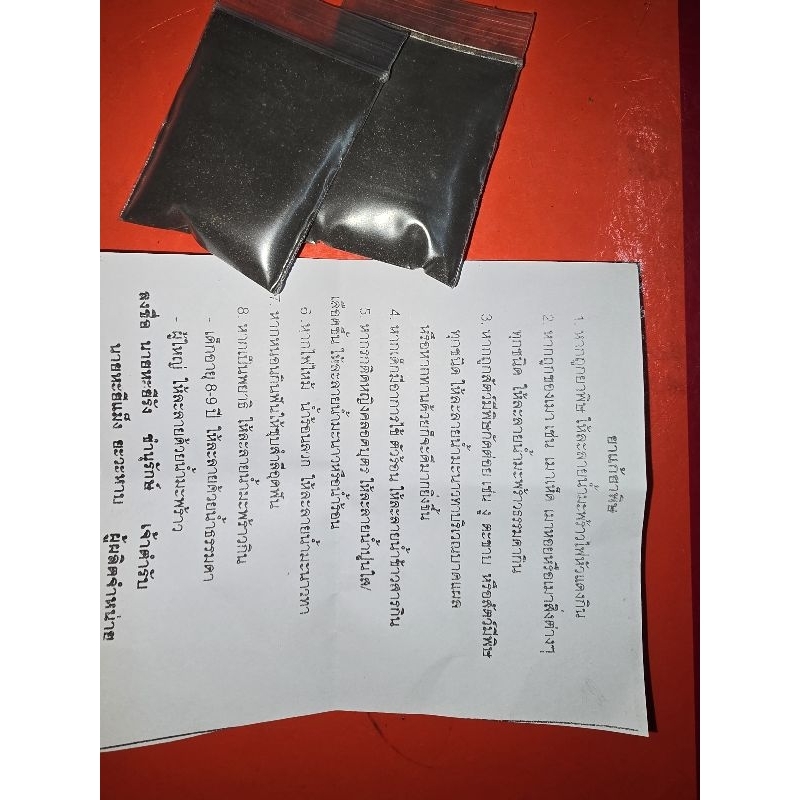 ยาแก้ยาพิษ
1. หากถูกยาพิษ ให้ละลายน้ำมะพร้าวไฟหัวแดงกิน
2. หากถูกของเมา เช่น เมาเห็ด เมาหอยหรือเมาสิ่งต่างๆ
ทุกชนิด ให้ละลายน้ำมะพร้าวธรรมดากิน
3. หากถูกสัตว์มีพิษกัดต่อย เช่น งู ตะขาบ หรือสัตว์มีพิษ
ทุกชนิด ให้ละลายน้ำมะนาวทาบริเวณบาดแผล
หรือหากทานด้วยก็จะดีมากยิ่งขึ้น
4. หากเด็กมีอาการไข้ ตัวร้อน ให้ละลายน้ำข้าวสารกิน
5. หากราติดหญิงคลอดบุตร ให้ละลายน้ำปูนใส/
เลือดขึ้น ให้ละลายน้ำมะนาวหรือน้ำร้อน
6 .หากไฟไหม้ น้ำร้อนลวก ให้ละลายน้ำมะนาวทา
7. หากหนอนกินฟันให้ชุบสำลีอุดฟัน
8. หากเป็นพยาธิ ให้ละลายน้ำมะพร้าวกิน
- เด็กอายุ 8-9 ปี ให้ละลายด้วยน้ำธรรมดา
- ผู้ใหญ่ ให้ละลายด้วยน้ำมะพร้าว
ลงชื่อ นายหะยีรัง ชำนุรักษ์ เจ้าตำรับ
นายหะยีแม็ง ยะวะหาบ ผู้ผลิตจำหน่าย